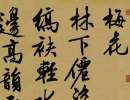 梅花
林下僊姿
縞袂輕水
邊高韻